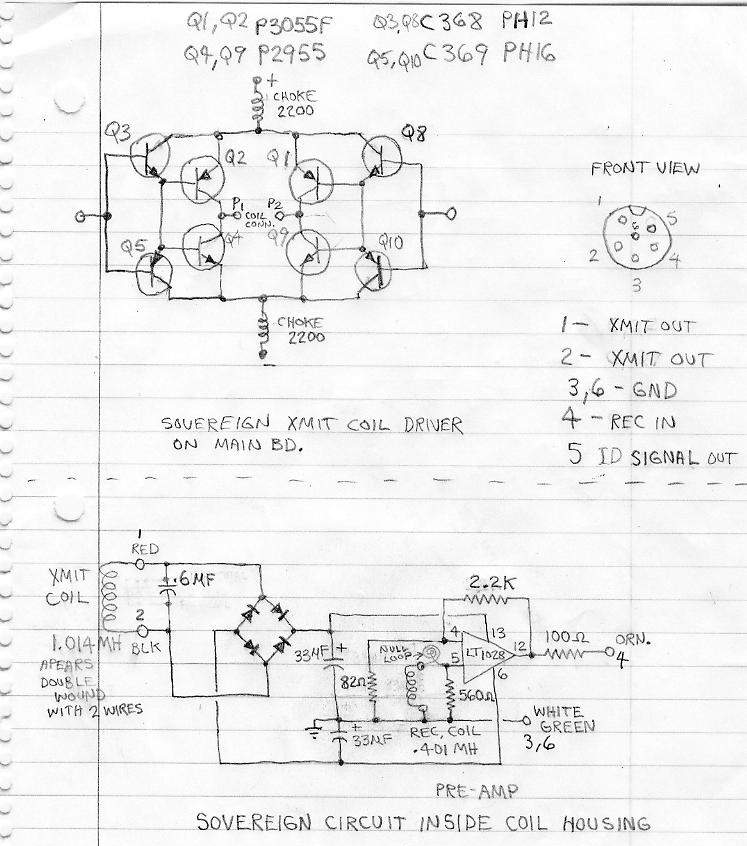 Q1, Q2 P3055F Q3,Q8 C368 PH12
Q4, Q9 P2955 Q5,Q10 C369 PH16
+
CHOKE
2200
Q3
Q8
Q2
Q1
FRONT VIEW
P1
P2
COIL
CONN.
Q4
Q9
Q5
Q10
1
5
6
2
4
3
CHOKE
2200
-
1 - XMIT OUT
2 - XMIT OUT
3,6 - GND
4 - REC IN
5 ID SIGNAL OUT
SOVEREIGN XMIT COIL DRIVER
ON MAIN BD.
1
RED
XMIT
COIL
.6MF
2
BLK
1.014 MH
APEARS
DOUBLE
WOUND
WITH 2 WIRES
2.2K
+
33MF
82Ω
NULL
LOOP
4
13
5
LT1028
12
6
100Ω
ORN.
4
560Ω
+
33MF
REC, COIL
.401 MH
WHITE
GREEN
3,6
PRE-AMP
SOVEREIGN CIRCUIT INSIDE COIL HOUSING